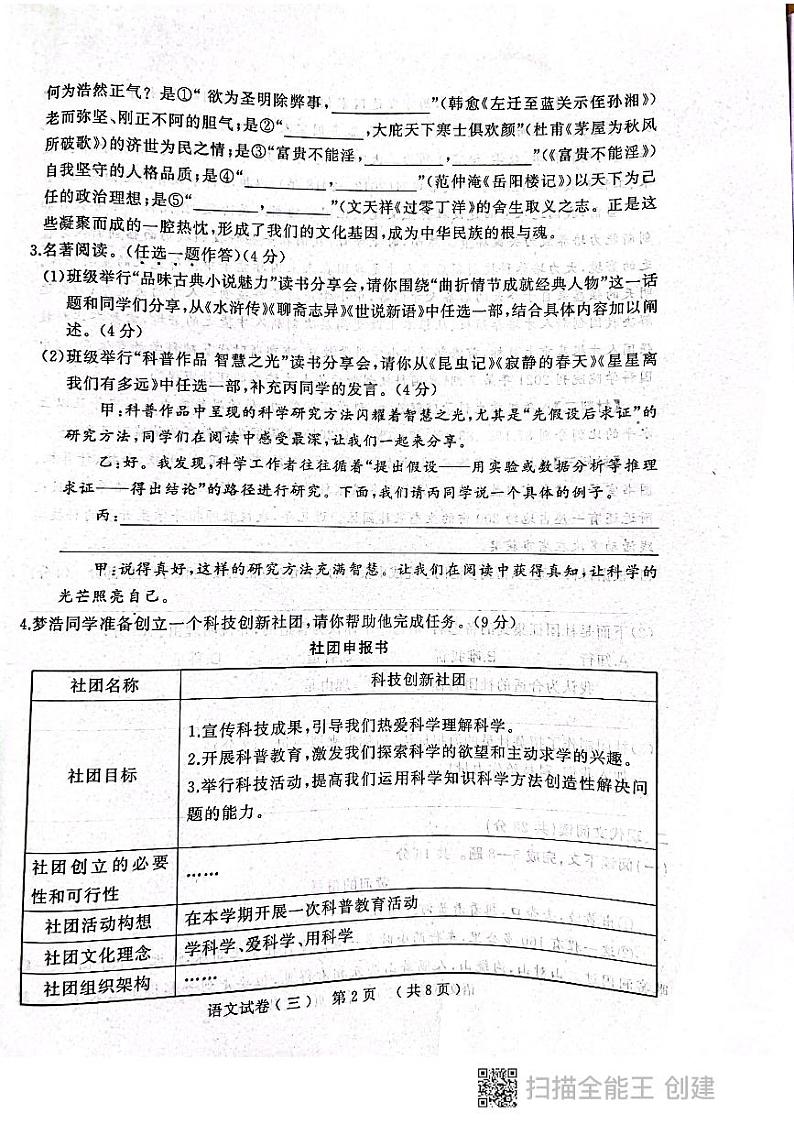 何为浩然正气？是①“ 欲为圣明除弊事，__________”(韩愈《左迁至蓝关示侄孙湘》)
老而弥坚、刚正不阿的胆气；是②“__________，大庇天下寒士俱欢颜”(杜甫《茅屋为秋风
所破歌》)的济世为民之情；是③“富贵不能淫，________，________”(《富贵不能淫》)
自我坚守的人格品质；是④“________，________”(范仲淹《岳阳楼记》)以天下为己
任的政治理想；是⑤“________，________”(文天祥《过零丁洋》)的舍生取义之志。正是这
些凝聚而成的一腔热忱，形成了我们的文化基因，成为中华民族的根与魂。
3.名著阅读。(任选一题作答)(4分)
(1)班级举行“品味古典小说魅力”读书分享会，请你围绕“曲折情节成就经典人物”这一话
题和同学们分享，从《水浒传》《聊斋志异》《世说新语》中任选一部，结合具体内容加以阐
述。(4分)
(2)班级举行“科普作品 智慧之光”读书分享会，请你从《昆虫记》《寂静的春天》《星星离
我们有多远》中任选一部，补充丙同学的发言。(4分)
甲：科普作品中呈现的科学研究方法闪耀着智慧之光，尤其是“先假设后求证”的
研究方法，同学们在阅读中感受最深，让我们一起来分享。
乙：好。我发现，科学工作者往往循着“提出假设——用实验或数据分析等推理
求证——得出结论”的路径进行研究。下面，我们请丙同学说一个具体的例子。
丙：
甲：说得真好，这样的研究方法充满智慧。让我们在阅读中获得真知，让科学的
光芒照亮自己。
4.梦浩同学准备创立一个科技创新社团，请你帮助他完成任务。(9分)
社团申报书
社团名称 科技创新社团
社团目标
1.宣传科技成果，引导我们热爱科学理解科学。
2.开展科普教育，激发我们探索科学的欲望和主动求学的兴趣。
3.举行科技活动，提高我们运用科学知识科学方法创造性解决问
题的能力。
社团创立的必要
性和可行性 ……
社团活动构想 在本学期开展一次科普教育活动
社团文化理念 学科学、爱科学、用科学
社团组织架构 ……
语文试卷(三) 第2页 (共8页)
扫描全能王 创建